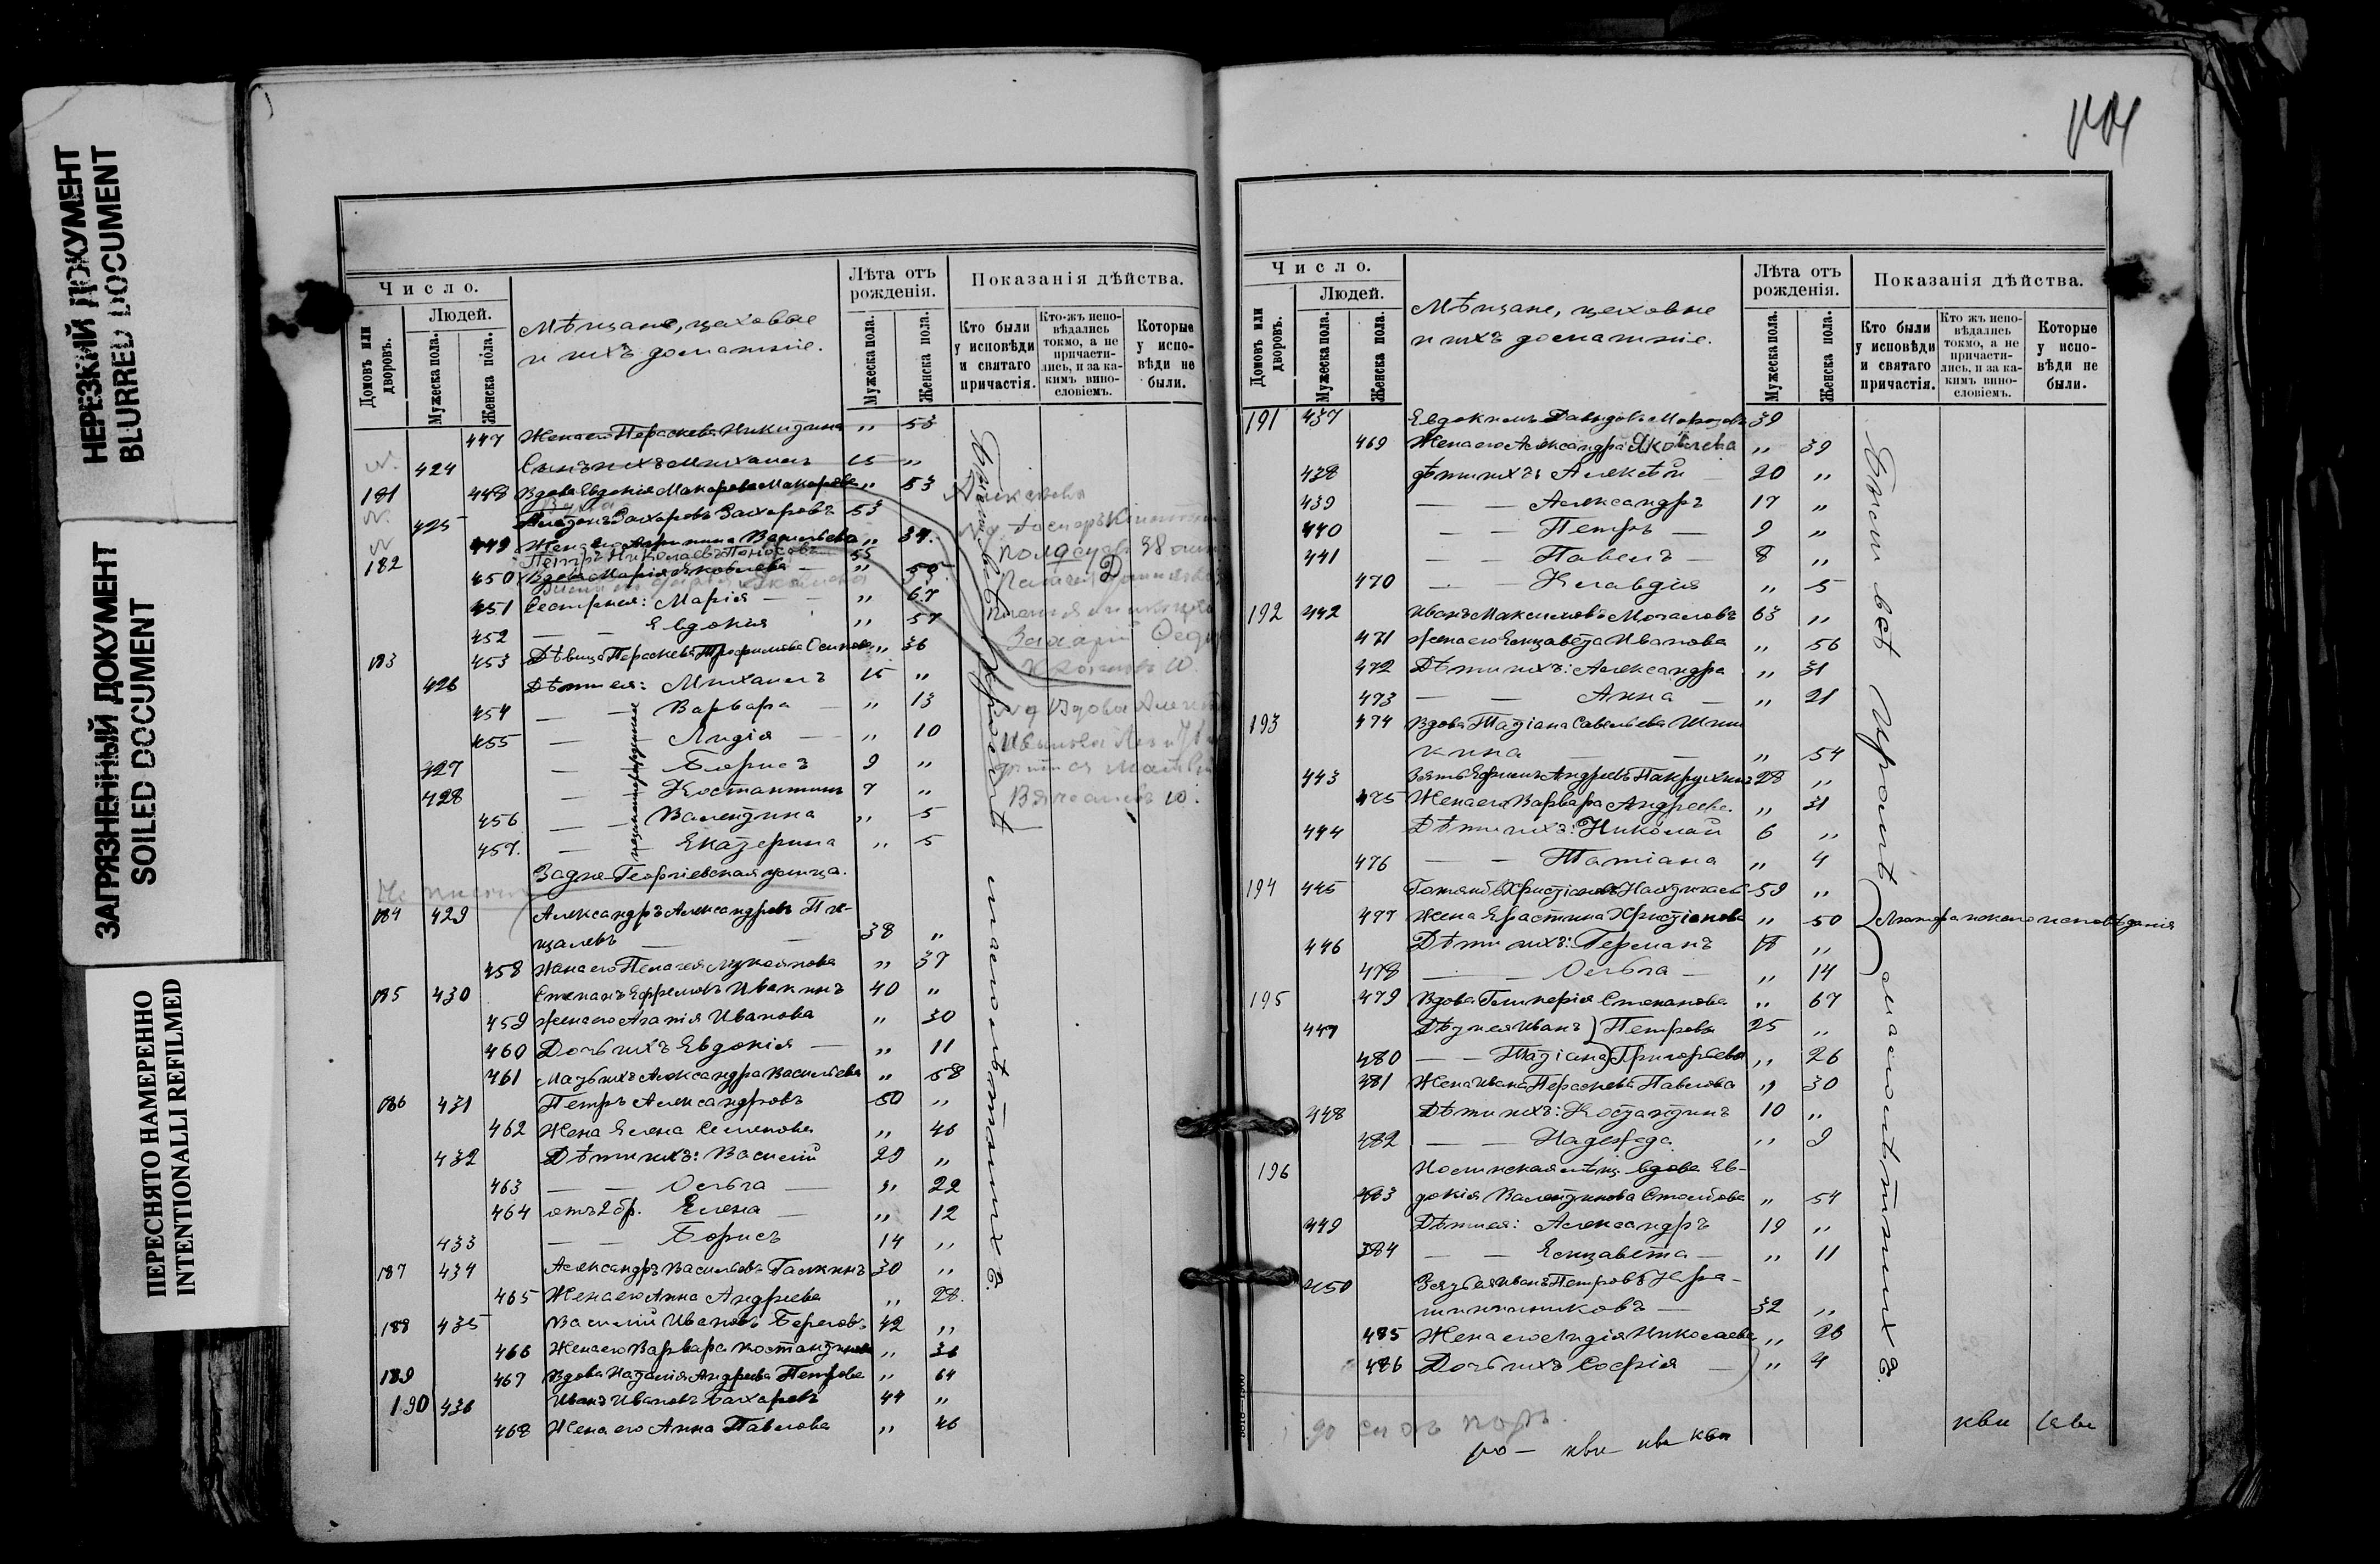 НЕРЕЗКИЙ ДОКУМЕНТ
BLURRED DOCUMENT
ЗАГРЯЗНЕННЫЙ ДОКУМЕНТ
SOILED DOCUMENT
ПЕРЕСНЯТО НАМЕРЕННО
INTENTIONALLI REFILMED
Число.
Домовъ или дворовъ.
Людей.
Мужеска пола.
Женска пола.
Мѣщане, цеховые
и ихъ домашніе.
Лѣта отъ рожденія.
Мужеска пола.
Женска пола.
Показанія дѣйства.
Кто были у исповѣди и святаго причастія.
Кто-жъ исповѣдались токмо, а не причастились, и за какимъ винословіемъ.
Которые у исповѣди не были.
447 Жена его Параскева Никитина „ 53
424 Сынъ ихъ Михаилъ 15 „
181 448 Вдова Евдокія Макарова Макарова „ 53
425 Захаровъ Захаровъ 53
449 Жена его Васильева „ 34
Петръ Николаевъ 55
182 450 Вдова Марія Яковлева „ 55
451 Сестры ея: Марія — „ 67
452 — — Евдокія „ 57
183 453 Дѣвица Параскева Трофимова Осипова „ 36
426 Дѣти ея: Михаилъ 15 „
454 — — Варвара — „ 13
455 — — Лидія — „ 10
427 — Борисъ 9 „
428 — Костантинъ 7 „
456 — — Валентина „ 5
457. — — Екатерина „ 5
незаконнорожденные
Задне-Георгіевская улица.
184 429 Александръ Александровъ Пи-
щалевъ — — 38 „
458 Жена его Пелагея Лукоянова „ 37
185 430 Степанъ Ефремовъ Ивакинъ 40 „
459 Жена его Агапія Иванова „ 30
460 Дочь ихъ Евдокія — „ 11
461 Мать ихъ Александра Васильева „ 58
186 431 Петръ Александровъ 50 „
462 Жена Елена Семенова „ 46
432 Дѣти ихъ: Василій 29 „
463 — — Ольга — „ 22
464 отъ 2 бр. Елена — „ 12
433 — — Борисъ 14 „
187 434 Александръ Васильевъ Галкинъ 30 „
465 Жена его Анна Андреева „ 28.
188 435 Василій Ивановъ Береговъ 42 „
466 Жена его Варвара Костантинова „ 36
189 467 Вдова Наталія Андреева Петрова „ 64
190 436 Иванъ Ивановъ Бахаревъ 44 „
468 Жена его Анна Павлова „ 46
Были всѣ кромѣ малолѣтнихъ.
Число.
Домовъ или дворовъ.
Людей.
Мужеска пола.
Женска пола.
Мѣщане, цеховые
и ихъ домашніе.
Лѣта отъ рожденія.
Мужеска пола.
Женска пола.
Показанія дѣйства.
Кто были у исповѣди и святаго причастія.
Кто жъ исповѣдались токмо, а не причастились, и за какимъ винословіемъ.
Которые у исповѣди не были.
191 437 Евдокимъ Давыдовъ Морозовъ 39
469 Жена его Александра Яковлева „ 39
438 Дѣти ихъ: Алексѣй — 20 „
439 — — Александръ 17 „
440 — — Петръ — 9 „
441 — — Павелъ — 8 „
470 — — Клавдія „ 5
192 442 Иванъ Максимовъ Мочаловъ 63 „
471 Жена его Елизавета Иванова „ 56
472 Дѣти ихъ: Александра „ 31
473 — — Анна — „ 21
193 474 Вдова Татіана Савельева Шиш
кина — — „ 54
443 Зять Ефимъ Андреевъ 28 „
475 Жена его Варвара Андреева. „ 31
444 Дѣти ихъ: Николай 6 „
476 — — Татіана „ 4
194 445 59 „
477 Жена Христіанова „ 50
Лютеранскаго исповѣданія
446 Дѣти ихъ: Германъ „
478 — — Ольга — „ 14
195 479 Вдова Гликерія Степанова „ 67
447 Дѣти ея Иванъ } Петровы 25 „
480 — — Татіана } Григорьевы „ 26
481 Жена Ивана Параскева Павлова „ 30
448 Дѣти ихъ: Костантинъ 10 „
482 — — Надежда „ 9
196 мѣщ. вдова Ев-
483 докія Валентинова Столбова „ 54
449 Дѣти ея: Александръ 19 „
484 — — Елизавета — „ 11
450 Зять ея Иванъ Петровъ Кра-
шенинниковъ — 32 „
485 Жена его Лидія Николаева „ 26
486 Дочь ихъ Софія — „ 4
Были всѣ кромѣ малолѣтнихъ.